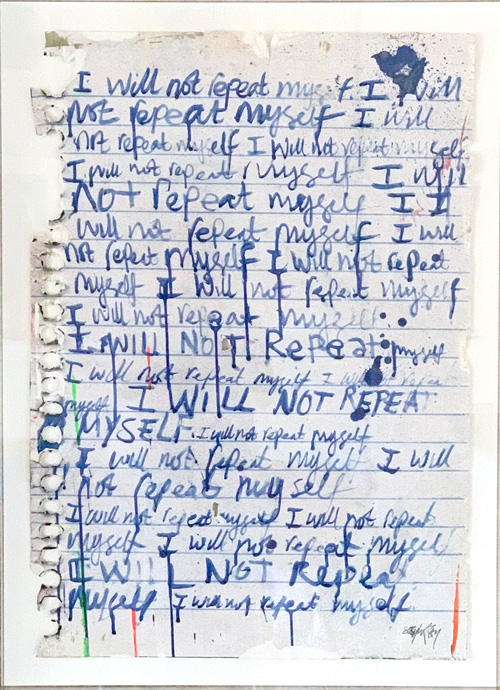 I will not repeat myself. I will
not repeat myself I will
not repeat myself I will not repeat myself
I will not repeat myself I will
Not repeat myself I I
will not repeat myself I will
not repeat myself I will not repeat
myself I will not repeat myself
I will not repeat myself
I WILL NOT Repeat myself
I will not repeat myself I will repeat
myself I WILL NOT REPEAT
MYSELF. I will not repeat myself
I will not repeat myself I will
not repeat myself
I will not repeat myself I will not repeat
myself I will not repeat myself
I WILL NOT Repeat
Myself I will not repeat myself.